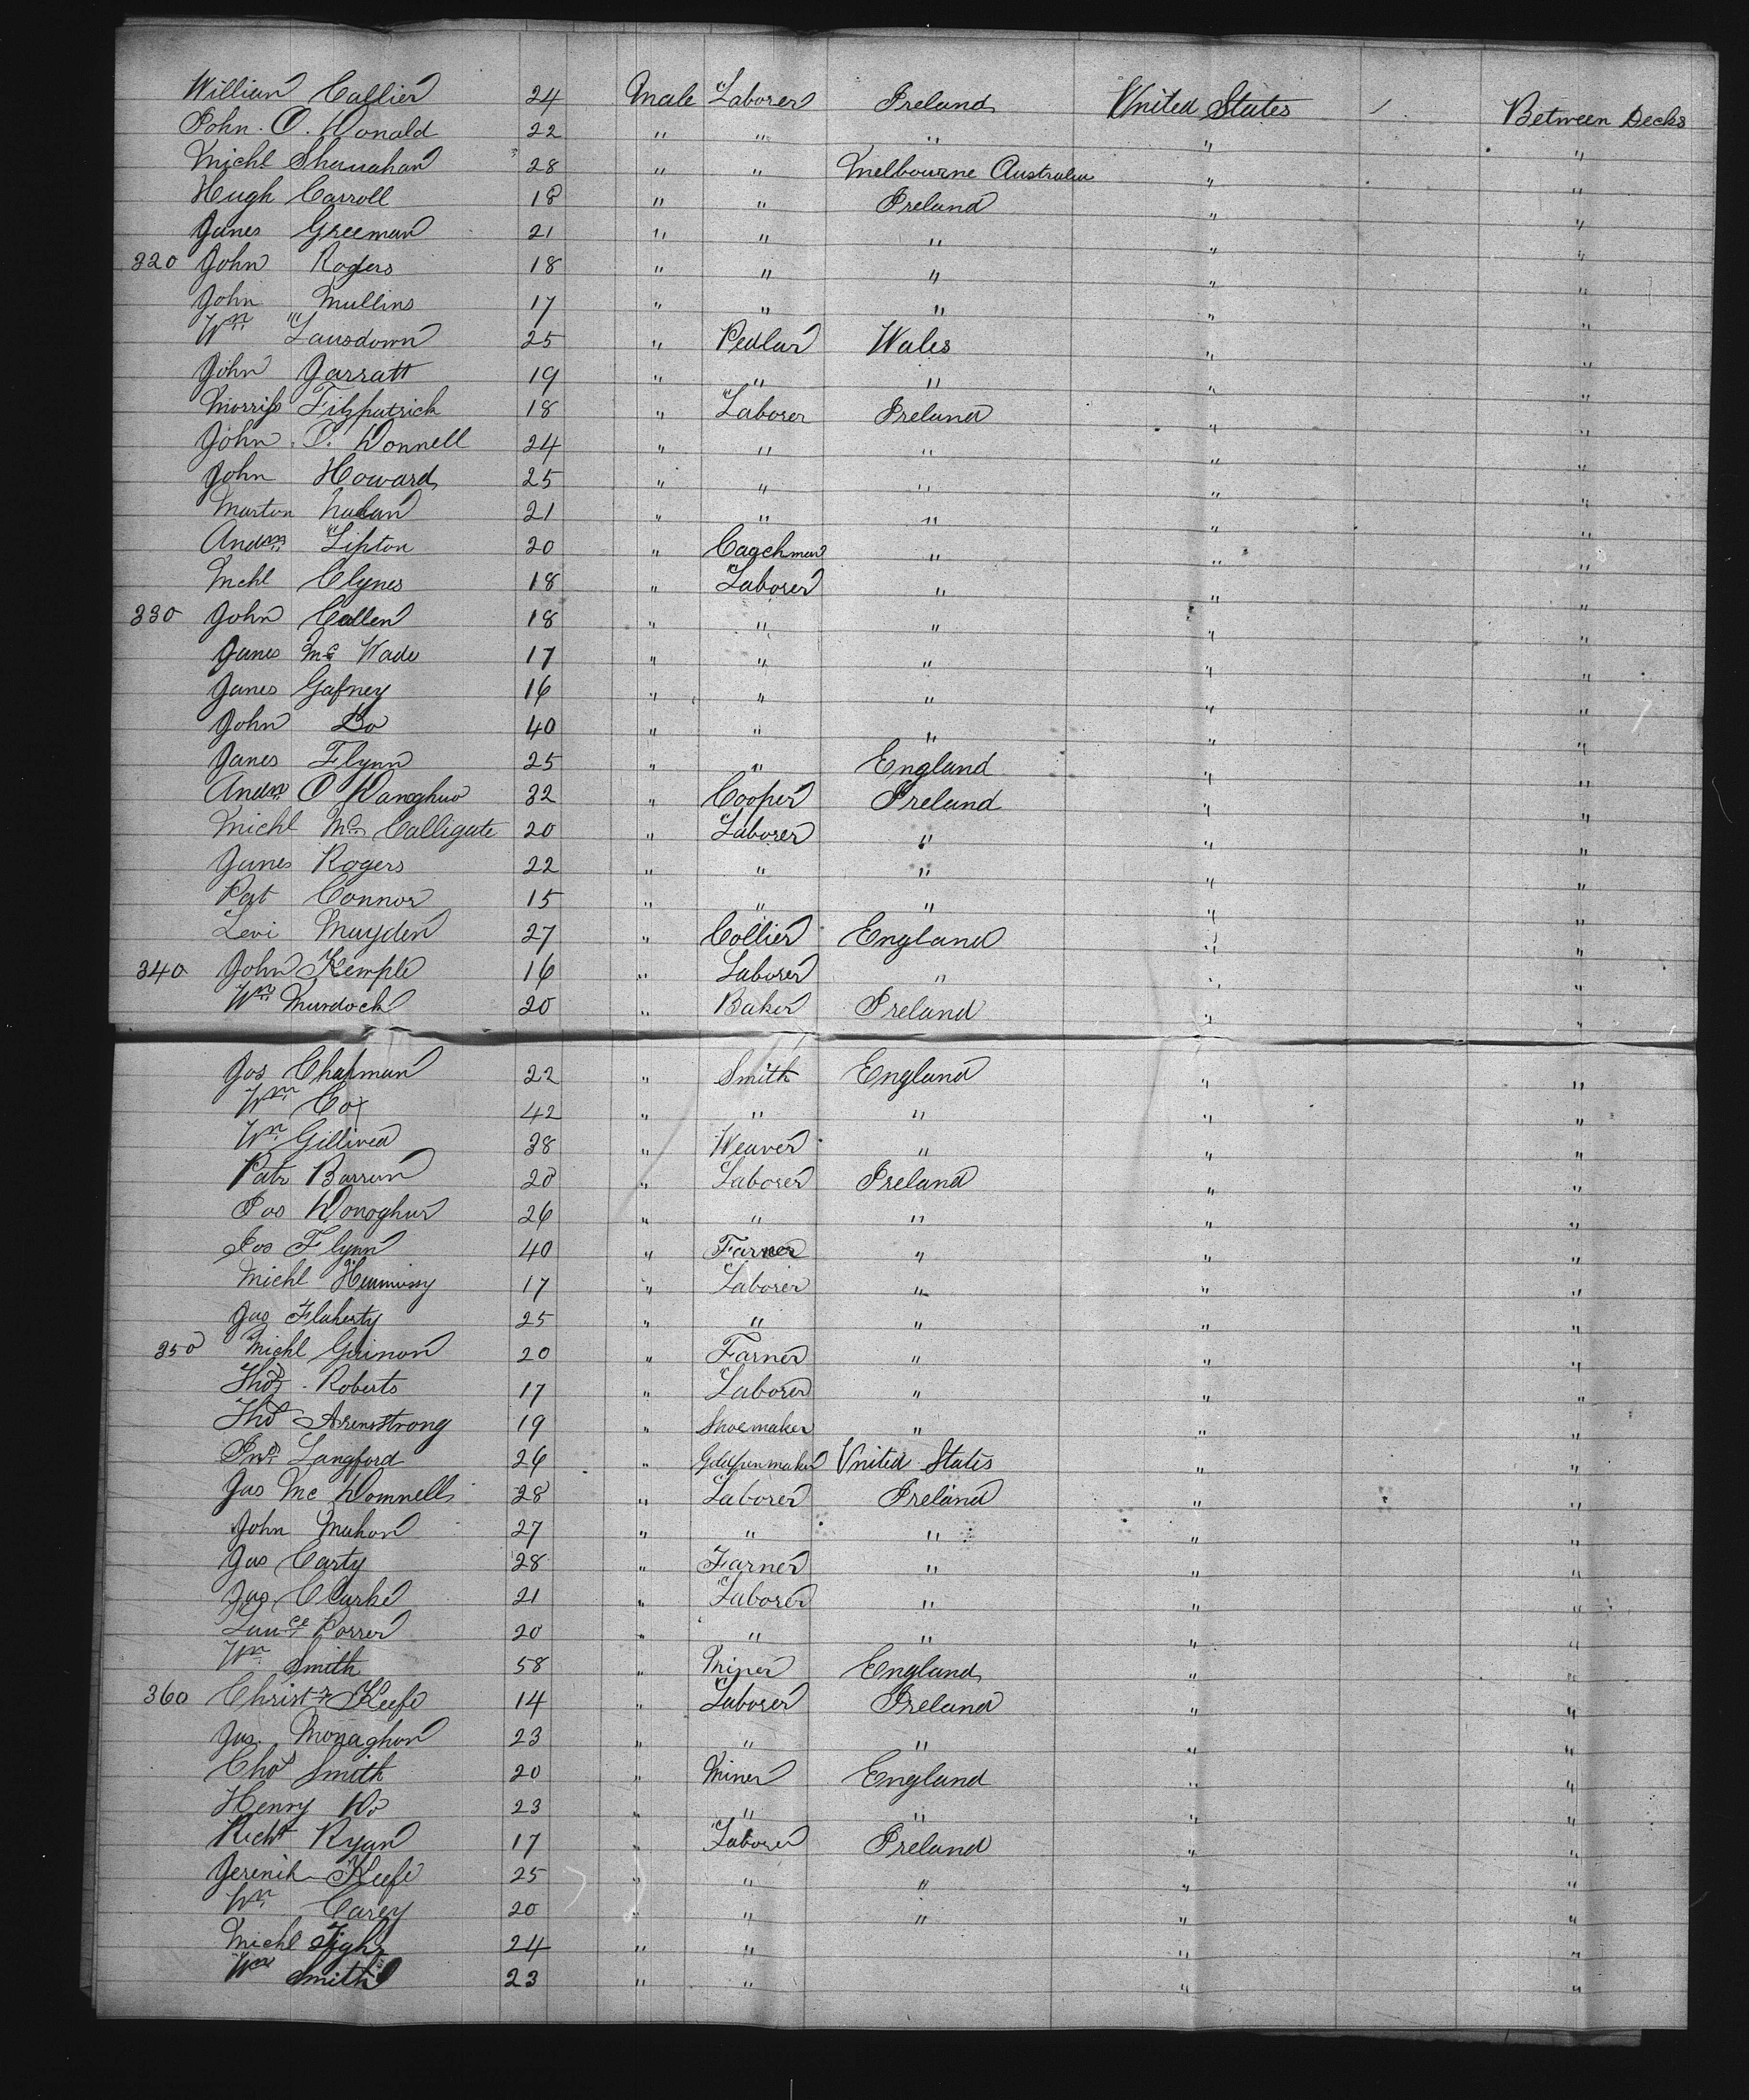 William Collier 24 Male Laborer Ireland United States / Between Decks
John. O. Donald 22 " " " " "
Michl Shanahan 28 " " Melbourne Australia " "
Hugh Carroll 18 " " Ireland " "
James Greeman 21 " " " " "
320 John Rogers 18 " " " " "
John Mullins 17 " " " " "
Wm Lansdown 25 " Pedlar Wales " "
John Jarratt 19 " " " " "
Morriss Fitzpatrick 18 " Laborer Ireland " "
John. O. Donnell 24 " " " " "
John Howard 25 " " " " "
Marton 21 " " " " "
Andw Lipton 20 " Coachman " " "
Mchl Clynes 18 " Laborer " " "
330 John Callen 18 " " " " "
James Mc Wade 17 " " " " "
James Gafney 16 " " " " "
John Do 40 " " " " "
James Flynn 25 " " England " "
Andw O Donoghue 32 " Cooper Ireland " "
Michl Mc Calligate 20 " Laborer " " "
James Rogers 22 " " " " "
Pat Connor 15 " " " " "
Levi Mayden 27 " Collier England " "
340 John Kemple 16 " Laborer " " "
Wm Murdock 20 " Baker Ireland " "
Jos Chapman 22 " Smith England " "
Wm Cox 42 " " " " "
Wm 38 " Weaver " " "
Patk 20 " Laborer Ireland " "
Jas Donoghue 26 " " " " "
Jos Flynn 40 " Farmer " " "
Michl Hennissy 17 " Laborer " " "
Jas Flaherty 25 " " " " "
350 Michl Grinon 20 " Farmer " " "
Thos. Roberts 17 " Laborer " " "
Thos Armstrong 19 " Shoemaker " " "
Jno Langford 26 " United States " "
Jas Mc Domnell 28 " Laborer Ireland " "
John Mahon 27 " " " " "
Jas Carty 28 " Farmer " " "
Jas Clarke 21 " Laborer " " "
Lance Porrer 20 " " " " "
Wm Smith 58 " Miner England " "
360 Christr Keefe 14 " Laborer Ireland " "
Jas. Monaghon 23 " " " " "
Chas Smith 20 " Miner England " "
Henry Do 23 " " " " "
Richd Ryan 17 " Laborer Ireland " "
Jeremih Keefe 25 " " " " "
Wm Carey 20 " " " " "
Michl Tighe 24 " " " "
Wm Smith 23 " " " "